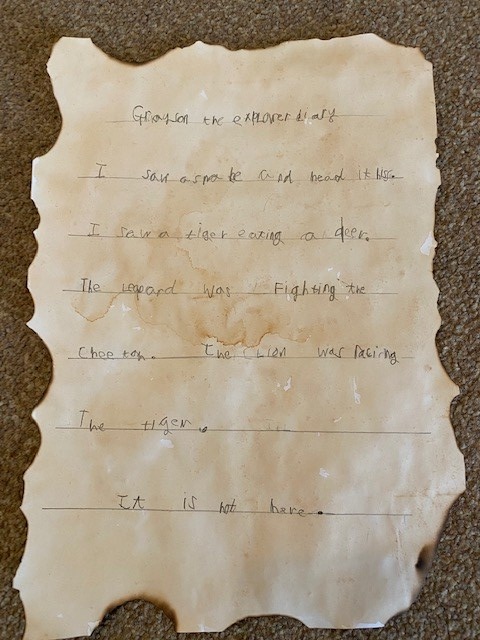 Grayson the explorer diary
I saw a snake and head it hiss.
I saw a tiger eating a deer.
The lepard was Fighting the
Cheetah. The Lion was Racing
The tiger.
It is hot here.